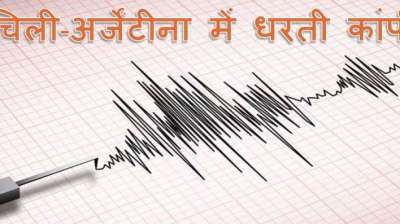 चिली-अर्जेंटीना में धरती कांपी